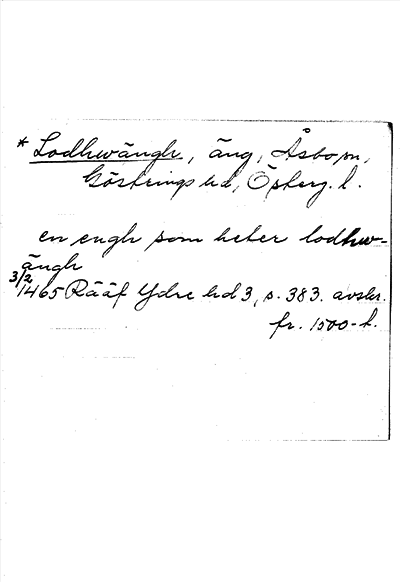 * Lodhwängh, äng, Åsbo sn,
Göstrings hd, Österg. l.
en engh som heter lodhw-
ängh
3/2 1465 Rääf Ydre hd 3, s. 383. avskr.
fr. 1500-t.